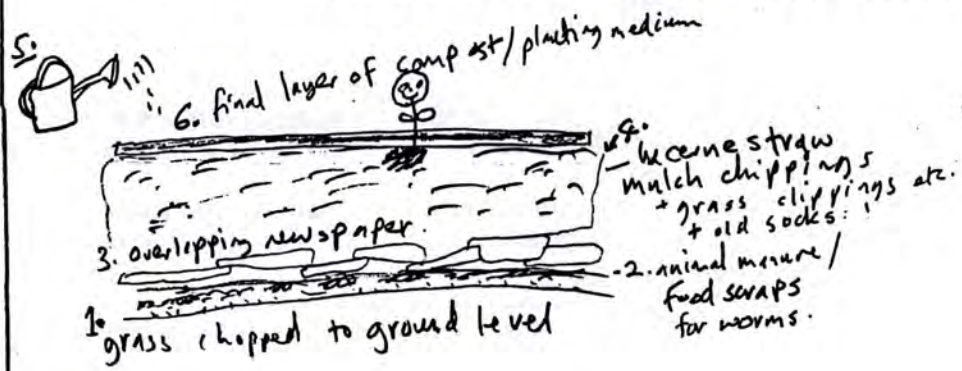 5.
6. final layer of compost/planting medium
4.
lucerne straw
mulch chippings
+ grass clippings etc.
+ old socks!
3. overlapping newspaper.
2. animal manure /
food scraps
for worms.
1. grass chopped to ground level